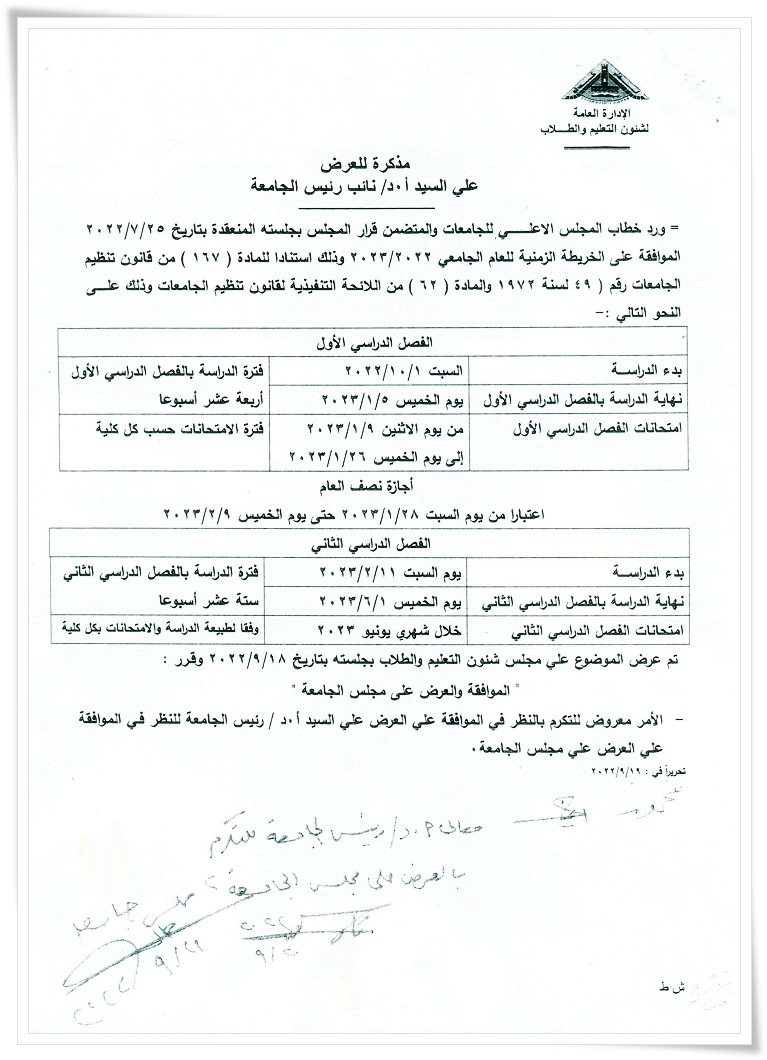 الإدارة العامة
لشئون التعليم والطـــلاب
مذكرة للعرض
علي السيد أ.د/ نائب رئيس الجامعة
= ورد خطاب المجلس الاعلـــــي للجامعات والمتضمن قرار المجلس بجلسته المنعقدة بتاريخ ٢٠٢٢/٧/٢٥
الموافقة على الخريطة الزمنية للعام الجامعي ٢٠٢٣/٢٠٢٢ وذلك استنادا للمادة ( ١٦٧ ) من قانون تنظيم
الجامعات رقم ( ٤٩ لسنة ١٩٧٢ والمادة ( ٦٢ ) من اللائحة التنفيذية لقانون تنظيم الجامعات وذلك علـــى
النحو التالي :-
الفصل الدراسي الأول
بدء الدراســـة السبت ٢٠٢٢/١٠/١ فترة الدراسة بالفصل الدراسي الأول
نهاية الدراسة بالفصل الدراسي الأول يوم الخميس ٢٠٢٣/١/٥ أربعة عشر أسبوعا
امتحانات الفصل الدراسي الأول من يوم الاثنين ٢٠٢٣/١/٩ فترة الامتحانات حسب كل كلية
إلى يوم الخميس ٢٠٢٣/١/٢٦
أجازة نصف العام
اعتبارا من يوم السبت ٢٠٢٣/١/٢٨ حتى يوم الخميس ٢٠٢٣/٢/٩
الفصل الدراسي الثاني
بدء الدراســـة يوم السبت ٢٠٢٣/٢/١١ فترة الدراسة بالفصل الدراسي الثاني
نهاية الدراسة بالفصل الدراسي الثاني يوم الخميس ٢٠٢٣/٦/١ ستة عشر أسبوعا
امتحانات الفصل الدراسي الثاني خلال شهري يونيو ٢٠٢٣ وفقا لطبيعة الدراسة والامتحانات بكل كلية
تم عرض الموضوع علي مجلس شئون التعليم والطلاب بجلسته بتاريخ ٢٠٢٢/٩/١٨ وقرر :
" الموافقة والعرض على مجلس الجامعة "
- الأمر معروض للتكرم بالنظر في الموافقة علي العرض علي السيد أ.د / رئيس الجامعة للنظر في الموافقة
علي العرض علي مجلس الجامعة.
تحريراً في : ٢٠٢٢/٩/١٩
معالى أ.د/ رئيس الجامعة للتكرم
بالعرض على مجلس الجامعة
ش ط